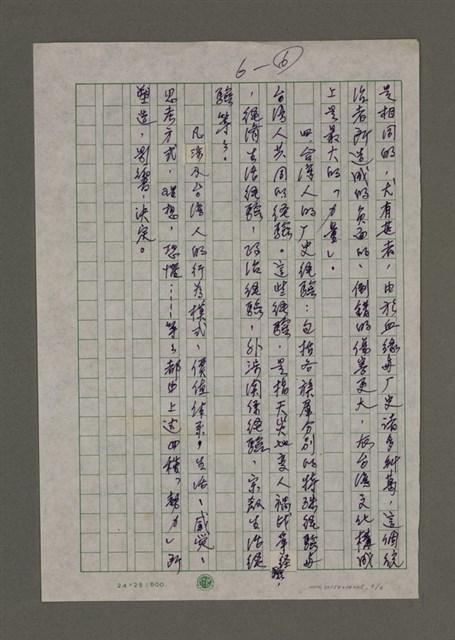 6－6
是相同的，尤有甚者，由於血緣與歷史諸多糾葛，這個統
治者所造成的負面的、倒錯的傷害更大，為台灣文化構成
上是最大的「力量」。
四、台灣人的歷史經驗：包括各族羣分別的特殊經驗與
台灣人共同的經驗。這些經驗，是指天災地變人禍戰爭經驗，
，經濟生活經驗，政治經驗，外涉關係經驗、宗教生活經
驗等々。
凡涉及台灣人的行為模式、價值体系、生活、感覺、
思考方式，理想，恐懼……等々都由上述四種「勢力」所
塑造，影響，決定。
24×25＝600